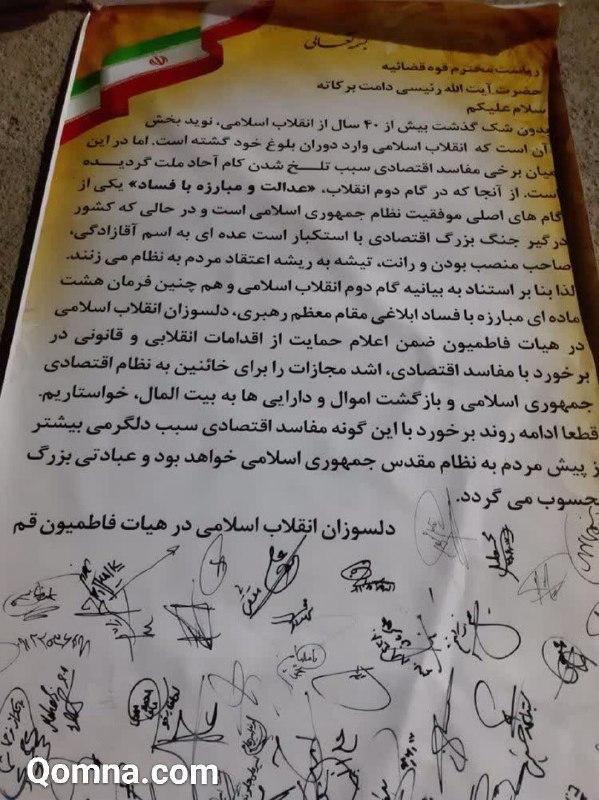 بسمه تعالی
ریاست محترم قوه قضائیه
حضرت آیت الله رئیسی دامت برکاته
سلام علیکم
بدون شک گذشت بیش از ۴۰ سال از انقلاب اسلامی، نوید بخش
آن است که انقلاب اسلامی وارد دوران بلوغ خود گشته است. اما در این
میان برخی مفاسد اقتصادی سبب تلخ شدن کام آحاد ملت گردیده
است. از آنجا که در گام دوم انقلاب، «عدالت و مبارزه با فساد» یکی از
گام های اصلی موفقیت نظام جمهوری اسلامی است و در حالی که کشور
درگیر جنگ بزرگ اقتصادی با استکبار است عده ای به اسم آقازادگی،
صاحب منصب بودن و رانت، تیشه به ریشه اعتقاد مردم به نظام می زنند.
لذا بنا بر استناد به بیانیه گام دوم انقلاب اسلامی و هم چنین فرمان هشت
ماده ای مبارزه با فساد ابلاغی مقام معظم رهبری، دلسوزان انقلاب اسلامی
در هیات فاطمیون ضمن اعلام حمایت از اقدامات انقلابی و قانونی در
برخورد با مفاسد اقتصادی، اشد مجازات را برای خائنین به نظام اقتصادی
جمهوری اسلامی و بازگشت اموال و دارایی ها به بیت المال، خواستاریم.
قطعا ادامه روند برخورد با این گونه مفاسد اقتصادی سبب دلگرمی بیشتر
از پیش مردم به نظام مقدس جمهوری اسلامی خواهد بود و عبادتی بزرگ
محسوب می گردد.
دلسوزان انقلاب اسلامی در هیات فاطمیون قم
Qomna.com